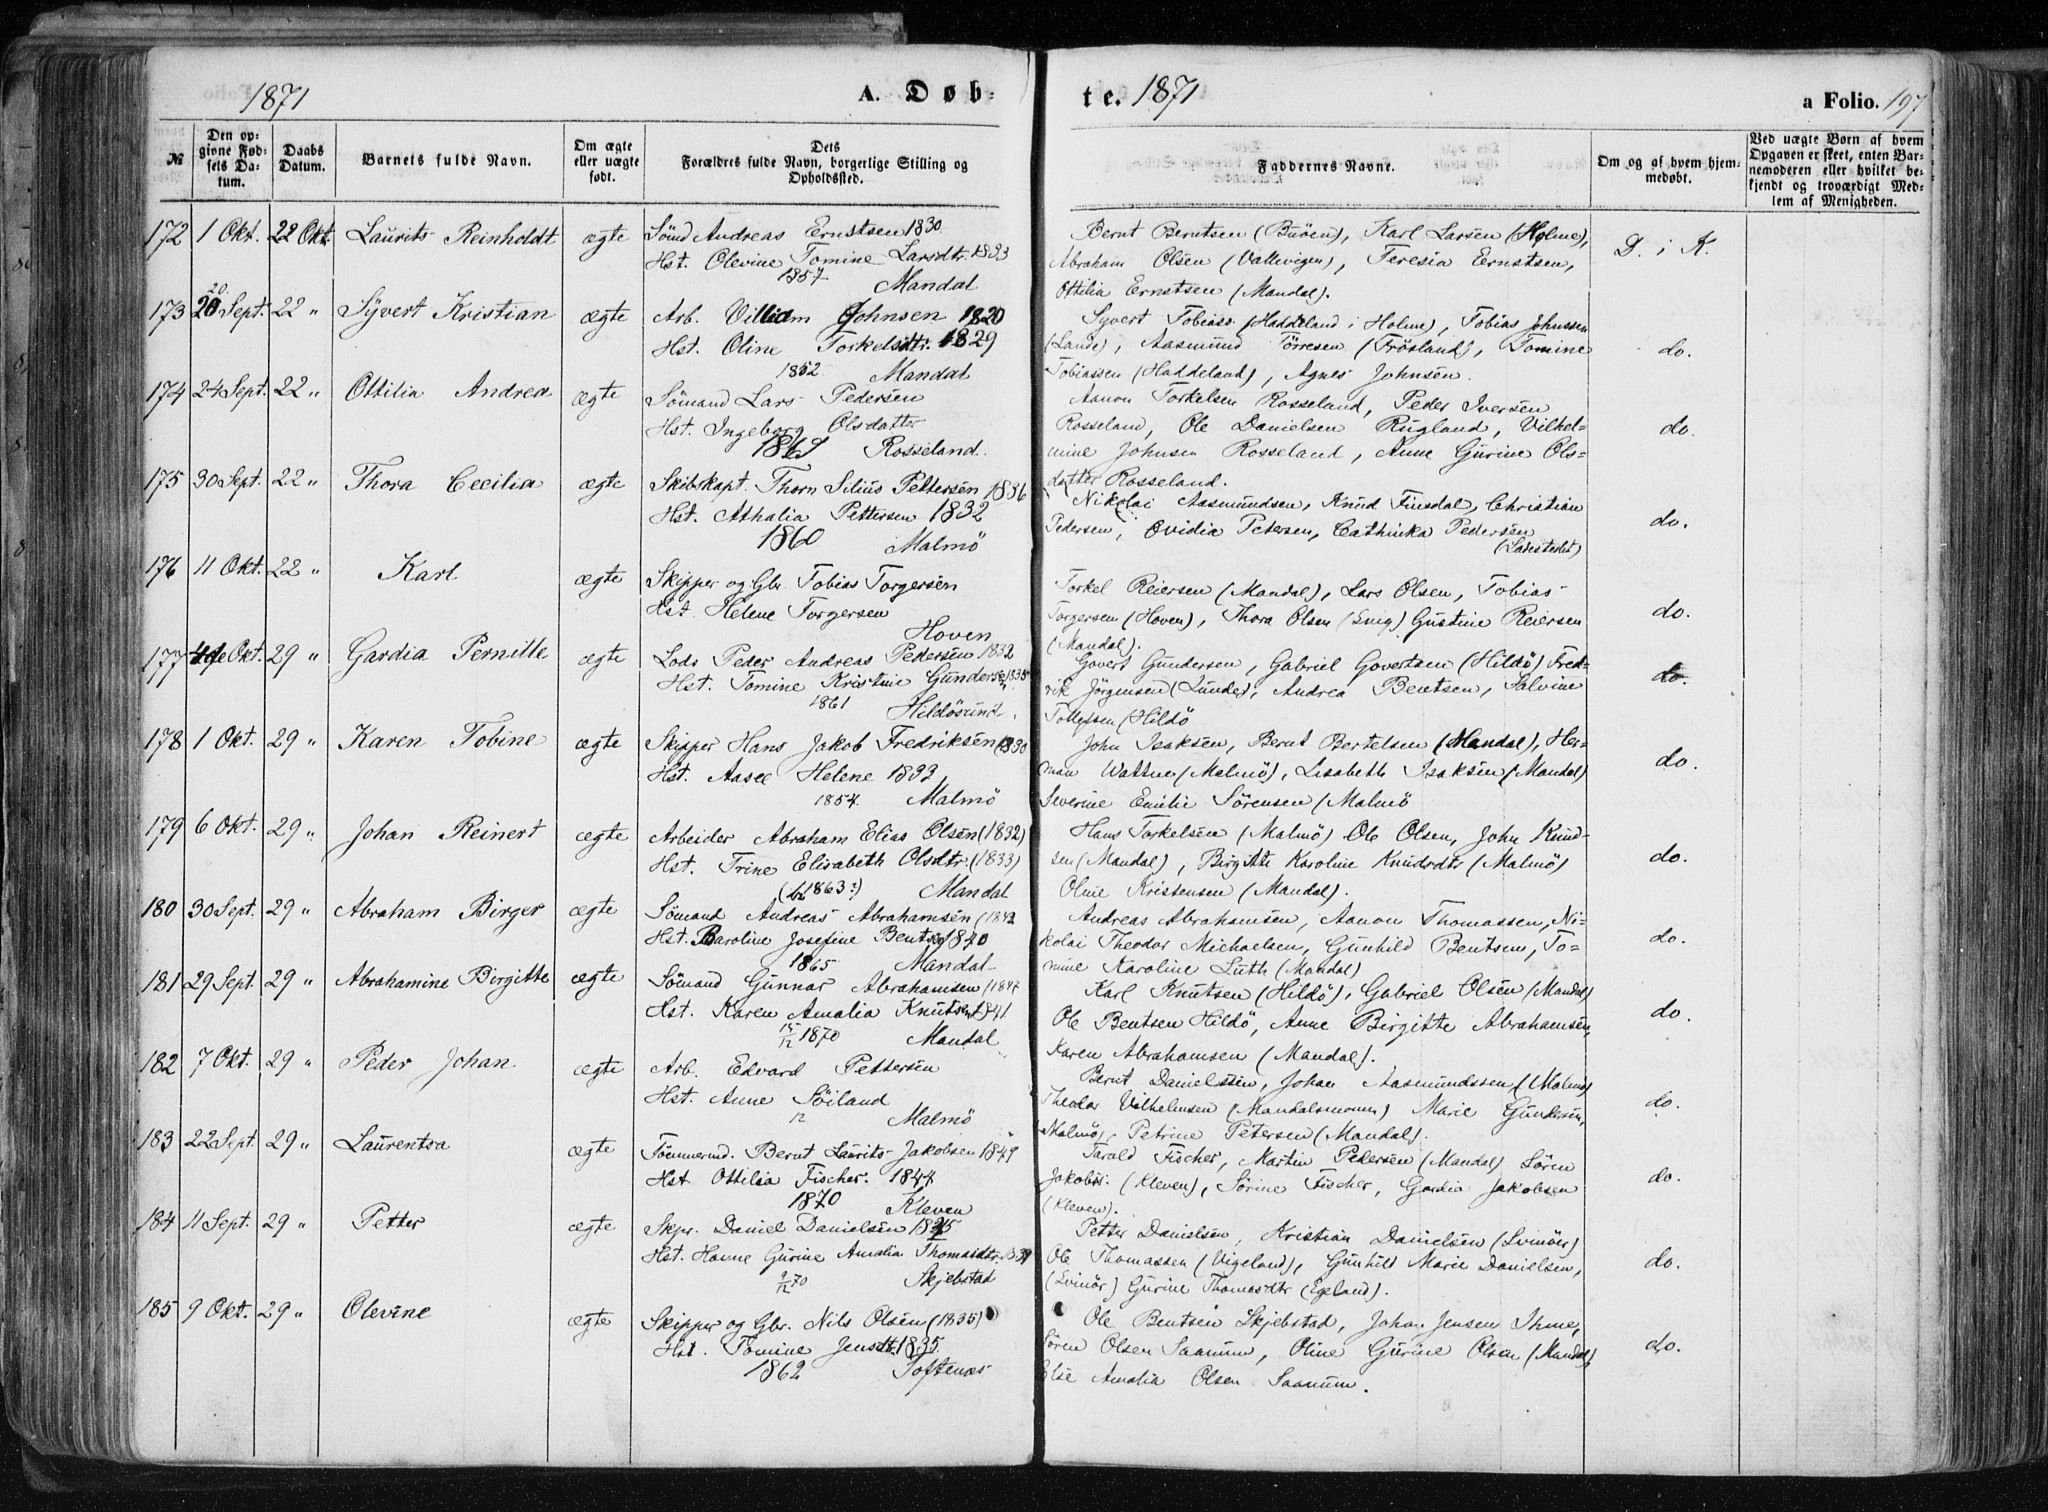 1871
A. Døb-
te. 1871
a Folio. 197
№
Den op-
givne Fød-
sels Da-
tum.
Daabs
Datum.
Barnets fulde Navn.
Om ægte
eller uægte
født.
Dets
Forældres fulde Navn, borgerlige Stilling og
Opholdssted.
Faddernes Navne.
Om og af hvem hjem-
medøbt.
Ved uægte Børn af hvem
Opgaven er skeet, enten Bar-
nemoderen eller hvilket be-
kjendt og troværdigt Med-
lem af Menigheden.
172 1 Okt. 22 Okt. Laurits Reinholdt ægte Sömd Andreas Ernstsen 1830
Hst. Olevine Tomine Larsdtr. 1833
1857 Mandal
Bernt Berntsen (Buöen), Karl Larsen (Holme),
Abraham Olsen (Vattvigen), Teresia Ernstsen,
Ottilia Ernstsen (Mandal).
D. i K.
173 20 Sept. 22 " Syvert Kristian ægte Arb. Villiam Johnsen 1820
Hst. Oline Torkelsdtr. 1829
1852 Mandal
Syvert Tobiass. (Haddeland i Holme), Tobias Johnssen
(Lande), Aasmund Törresen (Frösland), Tomine
Tobiassen (Haddeland), Agnes Johnsen.
do.
174 24 Sept. 22 " Ottilia Andrea ægte Sömand Lars Pedersen
Hst. Ingeborg Olsdatter
1869 Rosseland.
Aanon Torkelsen Rosseland, Peder Iversen
Rosseland, Ole Danielsen Rugland, Vilhel-
mine Johnsen Rosseland, Anne Gurine Ols-
datter Rosseland.
do.
175 30 Sept. 22 " Thora Cecilia ægte Skibskapt. Thorn Silius Pettersen 1836
Hst. Athalia Pettersen 1832
1860 Malmö
Nikolai Aasmundsen, Knud Finsdal, Christian
Pedersen, Ovidia Petersen, Cathinka Pedersen
(Ladestedet)
do.
176 11 Okt. 22 " Karl ægte Skipper og Gbr. Tobias Torgersen
Hst. Helene Torgersen
Hoven
Torkel Reiersen (Mandal), Lars Olsen, Tobias
Torgersen (Hoven), Thora Olsen Gustine Reiersen
(Mandal).
do.
177 Okt. 29 " Gardia Pernille ægte Lods Peder Andreas Pedersen 1832
Hst. Tomine Kristine Gundersen 1835
1861 Hildösund.
Govert Gundersen, Gabriel Govertsen (Hildö) Fred-
rik Jörgensen (Lunde), Andrea Bentsen, Salvine
Tollefsen (Hildö
do.
178 1 Okt. 29 " Karen Tobine ægte Skipper Hans Jakob Fredriksen (1830
Hst. Aasel Helene 1833
1854. Malmö
John Isaksen, Bernt Bertelsen (Mandal), Her-
man Wattne (Malmö), Lisabeth Isaksen (Mandal)
Severine Emilie Sörensen (Malmö
do.
179 6 Okt. 29 " Johan Reinert ægte Arbeider Abraham Elias Olsen (1832)
Hst. Trine Elisabeth Olsdtr. (1833)
1863:) Mandal
Hans Torkelsen (Malmö) Ole Olsen, John Knud-
sen (Mandal), Birgitte Karoline Knudsdtr (Malmö)
Oline Kristensen (Mandal).
do.
180 30 Sept. 29 " Abraham Birger ægte Sömand Andreas Abrahamsen (1842
Hst. Karoline Josefine Bentsen 1840
1865 Mandal
Andreas Abrahamsen, Aanon Thomassen, Ni-
kolai Theodor Michaelsen, Gunhild Bentsen, To-
mine Karoline Luth (Mandal)
do.
181 29 Sept. 29 " Abrahamine Birgitte ægte Sömand Gunnar Abrahamsen (1847
Hst. Karen Amalia Knutsen 1841
15/12 1870 Mandal
Karl Knutsen (Hildö), Gabriel Olsen (Mandal)
Ole Bentsen Hildö, Anne Birgitte Abrahamsen,
Karen Abrahamsen (Mandal).
do.
182 7 Okt. 29 " Peder Johan ægte Arb. Edvard Pettersen
Hst. Anne Söiland
12 Malmö
Bernt Danielsen, Johan Aasmundssen (Malmö)
Theodor Vilhelmsen (Mandalsmonen) Marie Gundersen,
Malmö, Petrine Petersen (Mandal).
do.
183 22 Sept. 29 " Laurentsa ægte Tömmermd. Bernt Laurits Jakobsen 1849
Hst Ottilia Fischer. 1844
1870 Kleven
Tarald Fischer, Martin Pedersen (Mandal) Sören
Jakobs. (Kleven), Sörine Fischer, Gardia Jakobsen
(Kleven).
do.
184 11 Sept. 29 " Petter ægte Skpr. Daniel Danielsen 1845
Hst. Hanne Gurine Amalia Thomasdtr.
9/12 70 Skjebstad
Petter Danielsen, Kristian Danielsen (Svinöer)
Ole Thomassen (Vigeland), Gunhild Marie Danielsen,
(Svinör) Gurine Thomasdtr (Egeland).
do.
185 9 Okt. 29 " Olevine ægte Skipper og Gbr. Nils Olsen (1835)
Hst. Tomine Jensdtr. 1835
1862 Toftenæs
Ole Bentsen Skjebstad, Johan Jensen Ihme,
Sören Olsen Saanum, Oline Gurine Olsen (Mandal)
Else Amalia Olsen Saanum.
do.